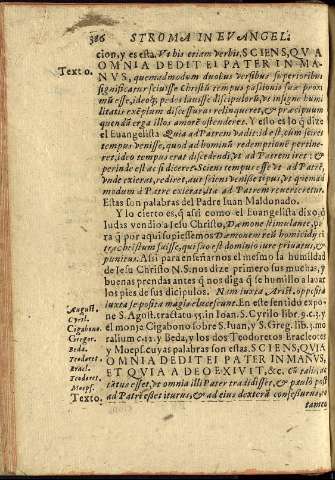 386 STROMA IN EVANGEL.
cion, y es esta. Vt bis etiam verbis, SCIENS, QVA
OMNIA DEDIT EI PATER IN MA
Texto. NVS, quemadmodum duobus versibus superioribus
significat scivisse Christũ tempus passionis suæ proxi
mũ esse, ideoq; pedes lavisse discipulorũ, vt insigne humi
litatis exẽplum discessurus relinqueret, & præcipuum
quendã erga illos amorẽ ostenderet. Y esto es lo q̃ dize
el Euangelista Quia ad Patrem vadit: id est, cum sciret
tempus venisse, quod ad hominũ redemptionẽ pertine
ret, ideo tempus eras discedendi, vt ad Patrem iret: &
perinde est ac si diceret: Sciens tempus esse vt ad Patrẽ,
vnde exierat, rediret, aut sciens venisse tẽpus, vt quemad
modum à Patre exierat, ita ad Patrem reverteretur.
Estas son palabras del Padre Iuan Maldonado.
Y lo cierto es, q̃ assi como el Euangelista dixo, q̃
Iudas vendio a Iesu Christo, Dæmone stimulante, pa
ra q̃ por aqui supiessemos Dæmonem reũ homicidij
Christi suisse, qui suo est dominio iure privatus, &
punitus. Assi para enseñarnos el mesmo la humildad
de Iesu Christo N.S. nos dize primero sus muchas, y
buenas prendas antes q̃ nos diga q̃ se humillo a lauar
los pies de sus dicipulos. Nam iuxta Arist. opposita
iuxta se posita magis elucescunt. En este sentido expone
August. S. Agust. tractatu 55. in Ioan. S. Cyrilo lib. 9. c. 3. y
Cyril.
Cigabono. el monje Cigabono sobre S. Iuan, y S. Greg. lib. 3. mo
Gregor. ralium c. 12. y Beda, y los dos Teodoretos Eracleotes
Beda. y Moeps. cuyas palabras son estas. SCIENS, QVIA
Teodoret. OMNIA DEDIT EI PATER IN MANVS,
Eracl. ET QVIA A DEO EXIVIT, &c.
Teodoret.
Moeps. esset, vt omnia illi Pater tradidisset, & paulo post
Texto. ad Patrẽ esset iturus, & ad eius dexterã consessurus,
tamen